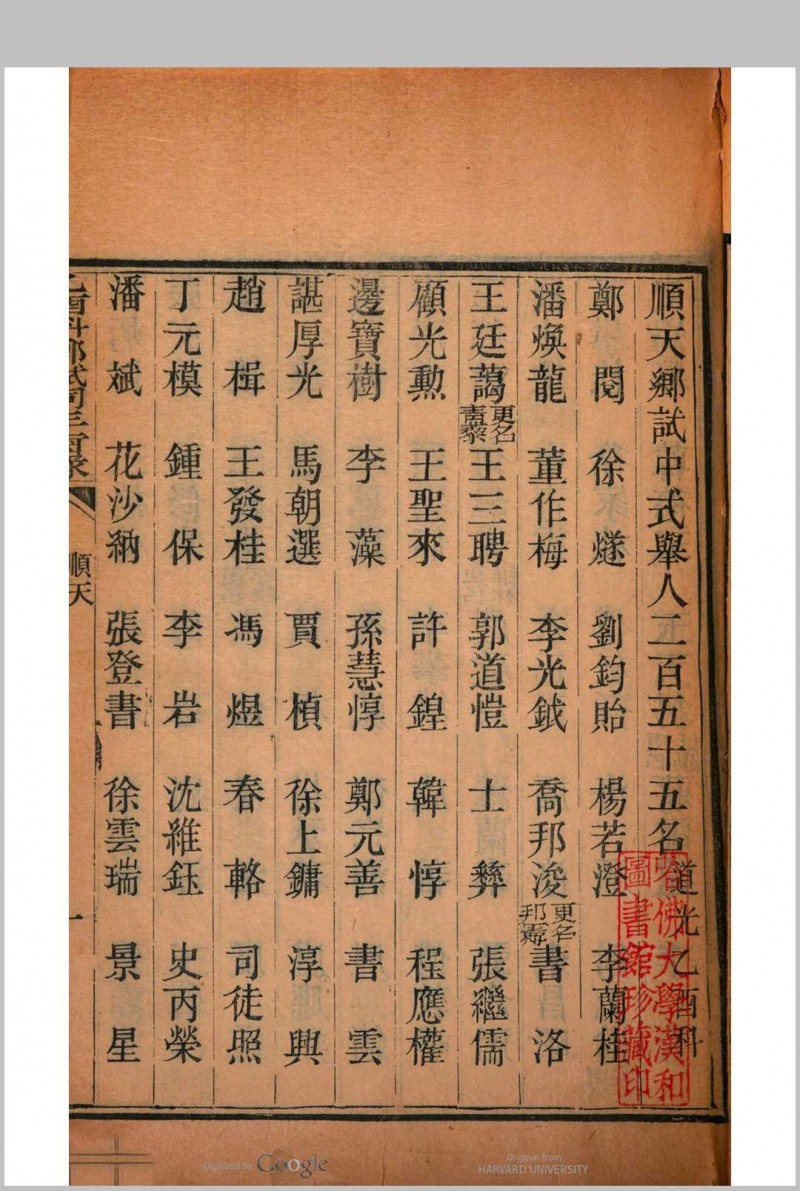 順天鄉試中式舉人二百五十五名 道光乙酉科
鄭閱 徐燧 劉鈞貽 楊若澄 李蘭桂
潘煥龍 董作梅 李光鉞 喬邦浚 更名邦憲 書洛
王廷藹 更名青藜 王三聘 郭道愷 士彝 張繼儒
顧光勲 王聖來 許鍠 韓惇 程應權
邊寶樹 李藻 孫慧惇 鄭元善 書雲
諶厚光 馬朝選 賈楨 徐上鏞 淳興
趙楫 王發桂 馮煜 春輅 司徒照
丁元模 鍾保 李岩 沈維鈺 史丙榮
潘斌 花沙納 張登書 徐雲瑞 景星
乙酉科鄉試同年齒錄 順天 一
哈佛大學漢和圖書館珍藏印
Digitized by Google
Original from
HARVARD UNIVERSITY